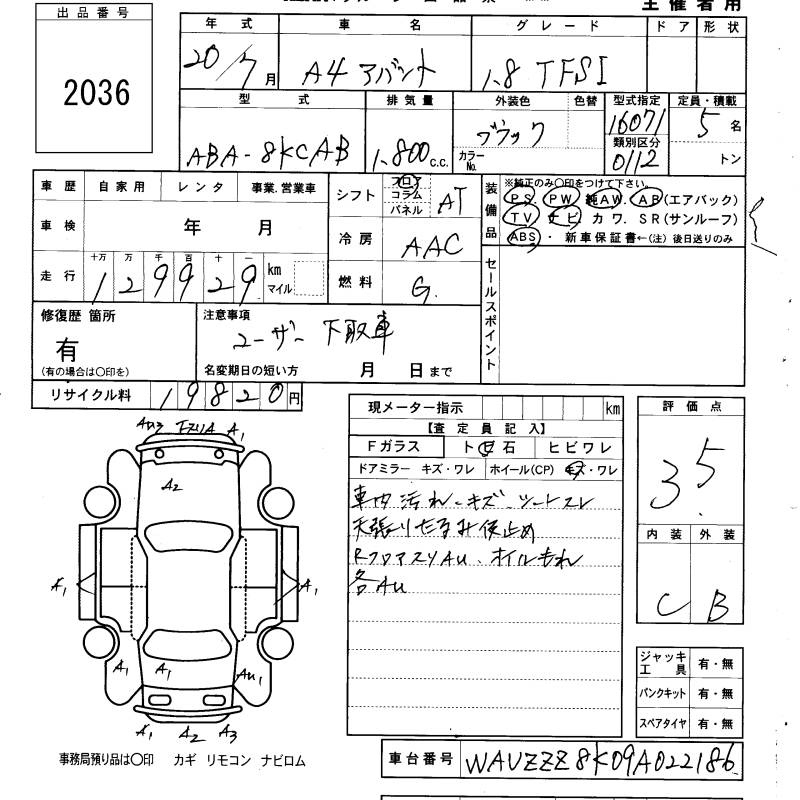 主催者用
出品番号
2036
年式 車名 グレード ドア 形状
20/7月 A4 アバント 1.8 TFSI
型式 排気量 外装色 色替 型式指定 定員・積載
ABA-8KCAB 1.800 C.C. ブラック 16071 5名
カラーNo. 類別区分 0112 トン
車歴 自家用 レンタ 事業.営業車
車検 年 月
走行 十万 万 千 百 十 一
129929 km マイル
シフト フロア コラム パネル AT
冷房 AAC
燃料 G.
装備品 ※純正のみ○印をつけて下さい。
PS. PW 純AW. AB(エアバック)
TV ナビ カワ. SR(サンルーフ)
ABS・ 新車保証書←(注) 後日送りのみ
セールスポイント
修復歴 箇所
有
(有の場合は○印を)
注意事項
ユーザー下取車
名変期日の短い方 月 日まで
リサイクル料 19820円
現メーター指示 km
【査定員記入】
Fガラス ト ビ 石 ヒビワレ
ドアミラー キズ・ワレ ホイール(CP) キズ・ワレ
車内 汚れ・キズ・シートスレ
天張りたるみ 仮止め
RフロアスリAu、オイルもれ
各Au
評価点
3.5
内装 外装
C B
ジャッキ工具 有・無
パンクキット 有・無
スペアタイヤ 有・無
Au3 A1
A2
A1 A1
A1 A1 Au1
A1 A2 A3
事務局預り品は○印 カギ リモコン ナビロム
車台番号 WAUZZZ8K09A022186